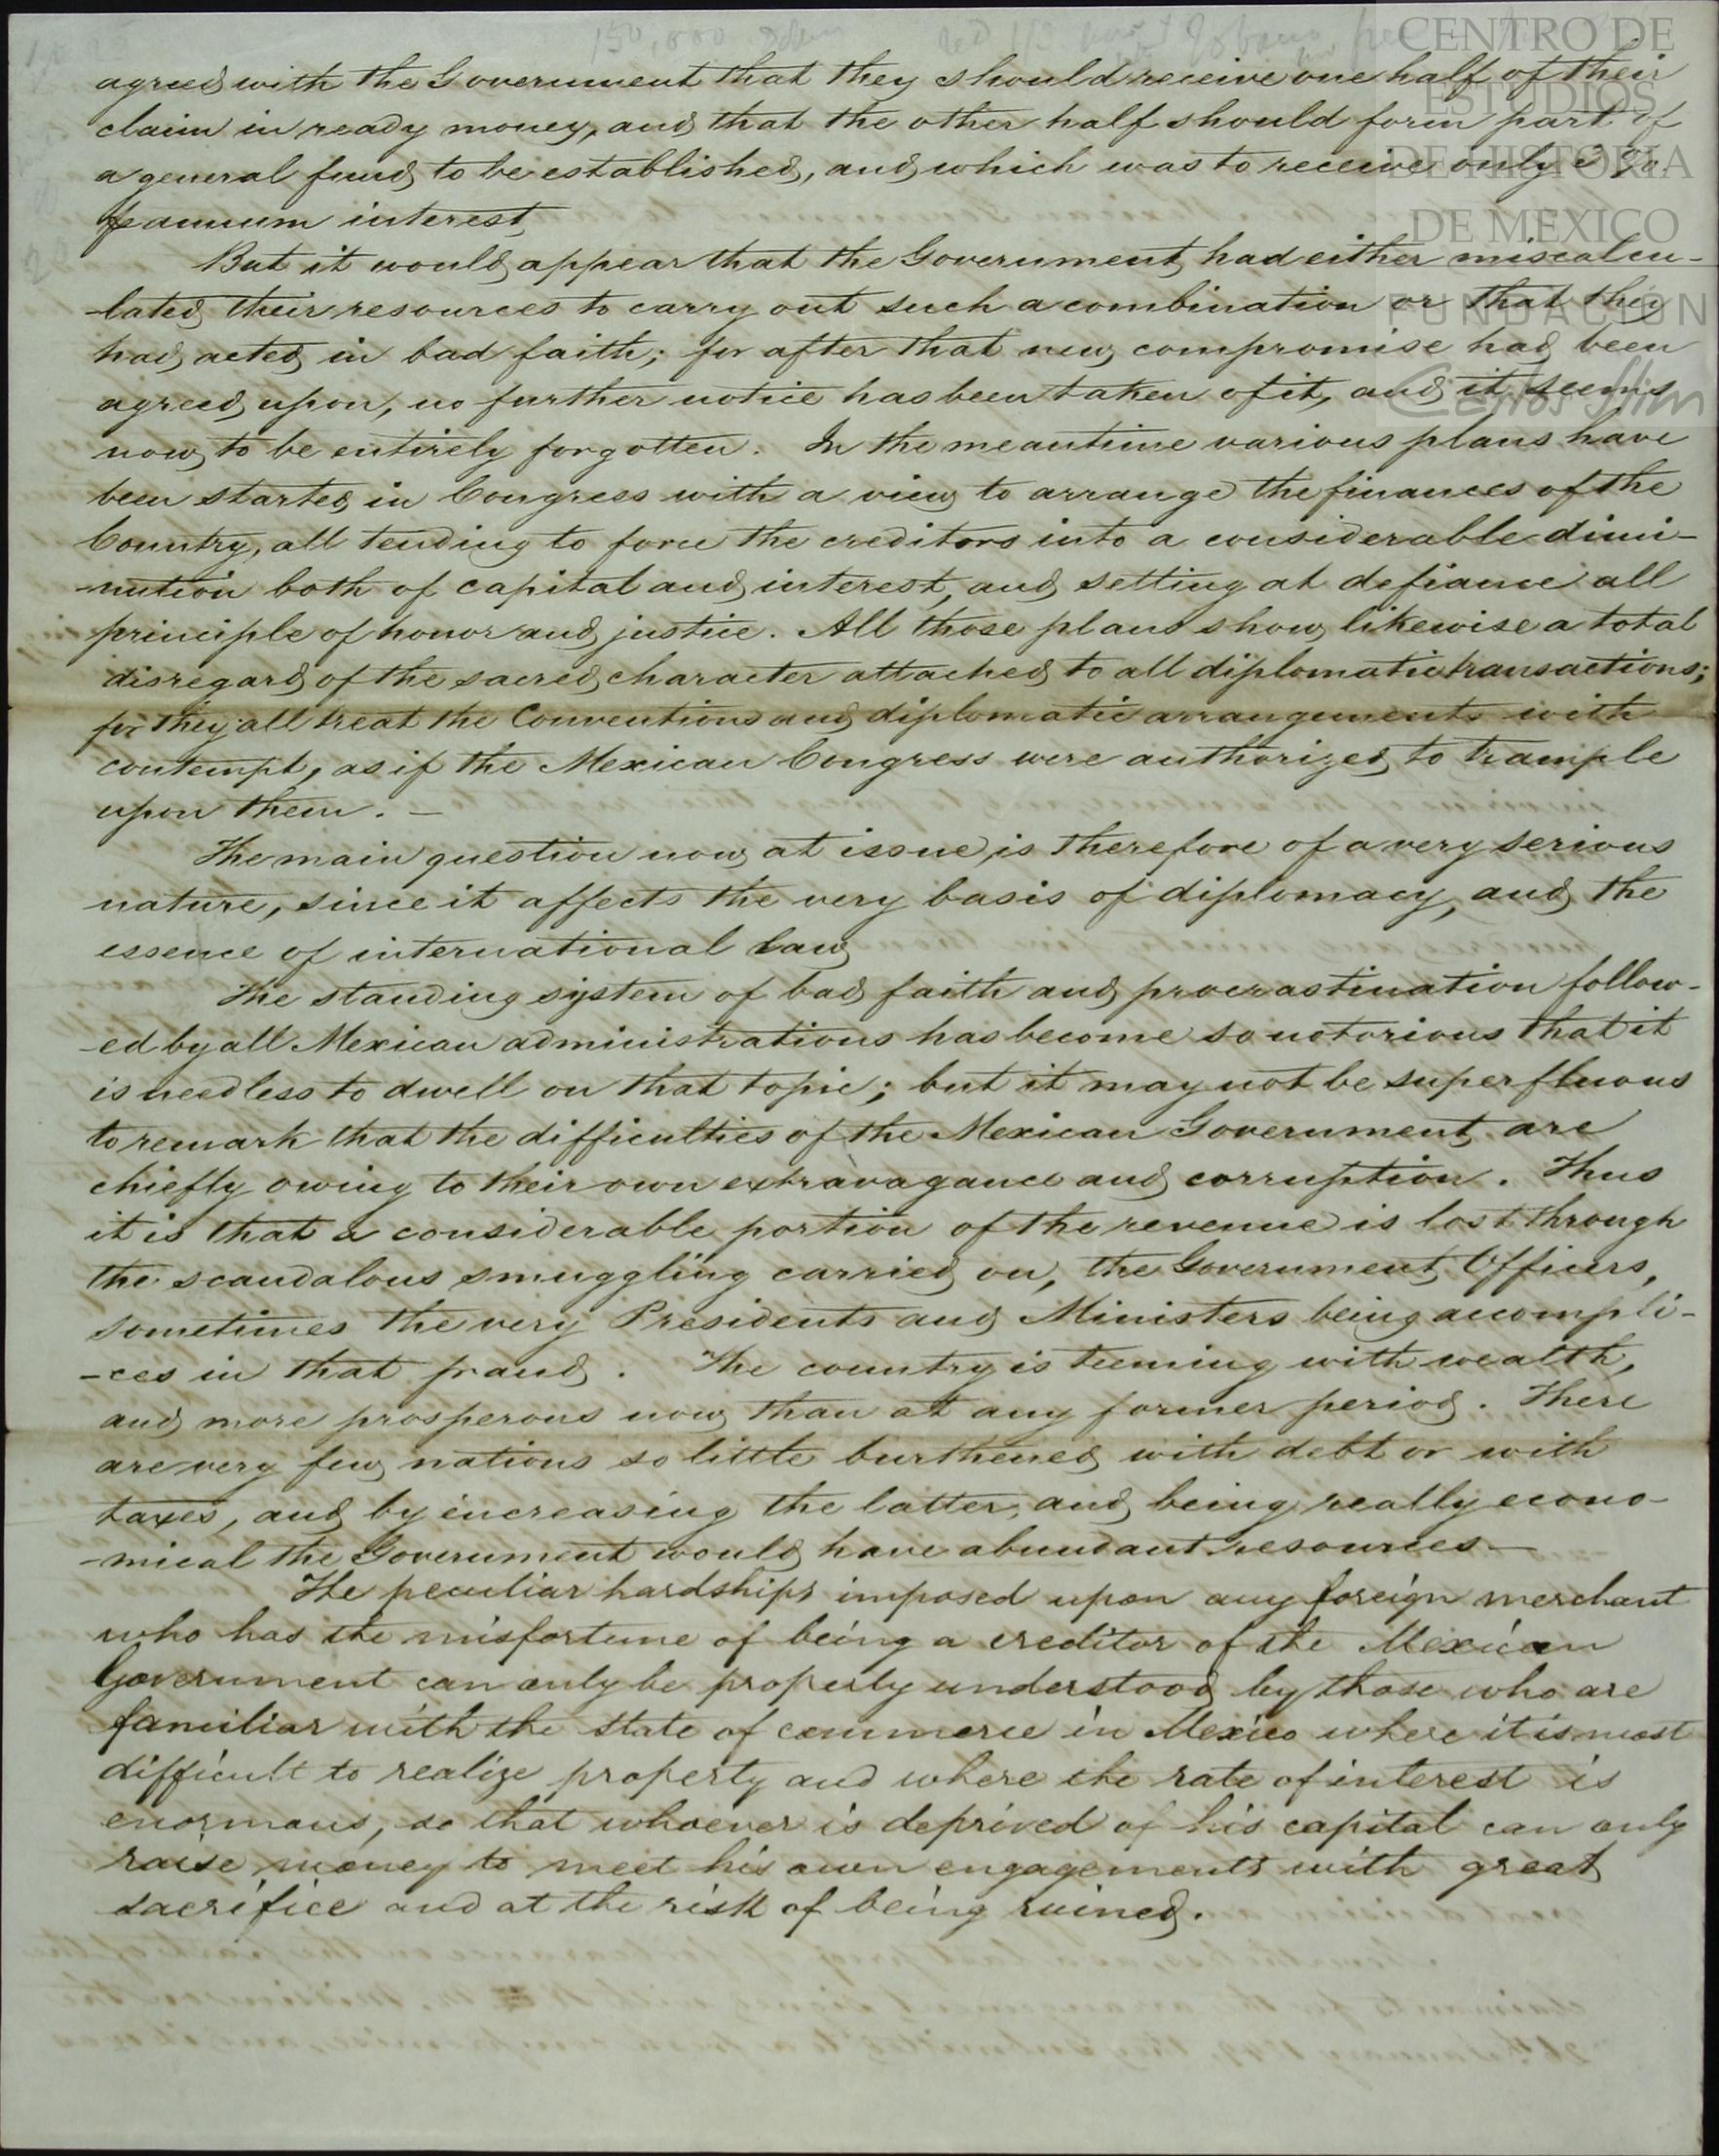 150,000
agreed with the Government that they should receive one half of their
claim in ready money, and that the other half should form part of
a general fund to be established, and which was to receive only %
annum interest
But it would appear that the Government had either miscalcu-
-lated their resources to carry out such a combination or that they
had acted in bad faith; for after that new compromise had been
agreed upon, no further notice has been taken of it, and it seems
now to be entirely forgotten. In the meantime various plans have
been started in Congress with a view to arrange the finances of the
Country, all tending to force the creditors into a considerable dimi-
-nution both of capital and interest, and setting at defiance all
principle of honor and justice. All those plans show likewise a total
disregard of the sacred character attached to all diplomatic transactions;
for they all treat the Conventions and diplomatic arrangements with
contempt, as if the Mexican Congress were authorized to trample
upon them. —
The main question now at issue is therefore of a very serious
nature, since it affects the very basis of diplomacy, and the
essence of international law
The standing system of bad faith and procrastination follow-
-ed by all Mexican administrations has become so notorious that it
is needless to dwell on that topic; but it may not be superfluous
to remark that the difficulties of the Mexican Government are
chiefly owing to their own extravagance and corruption. Thus
it is that a considerable portion of the revenue is lost through
the scandalous smuggling carried on, the Government Officers,
sometimes the very Presidents and Ministers being accompli-
-ces in that fraud. The country is teeming with wealth,
and more prosperous now than at any former period. There
are very few nations so little burthened with debt or with
taxes, and by increasing the latter, and being really econo-
-mical the Government would have abundant resources —
The peculiar hardships imposed upon any foreign merchant
who has the misfortune of being a creditor of the Mexican
Government can only be properly understood by those who are
familiar with the state of commerce in Mexico where it is most
difficult to realize property and where the rate of interest is
enormous, so that whoever is deprived of his capital can only
raise money to meet his own engagements with great
sacrifice and at the risk of being ruined.
CENTRO DE
ESTUDIOS
DE HISTORIA
DE MEXICO
FUNDACION
Carlos Slim